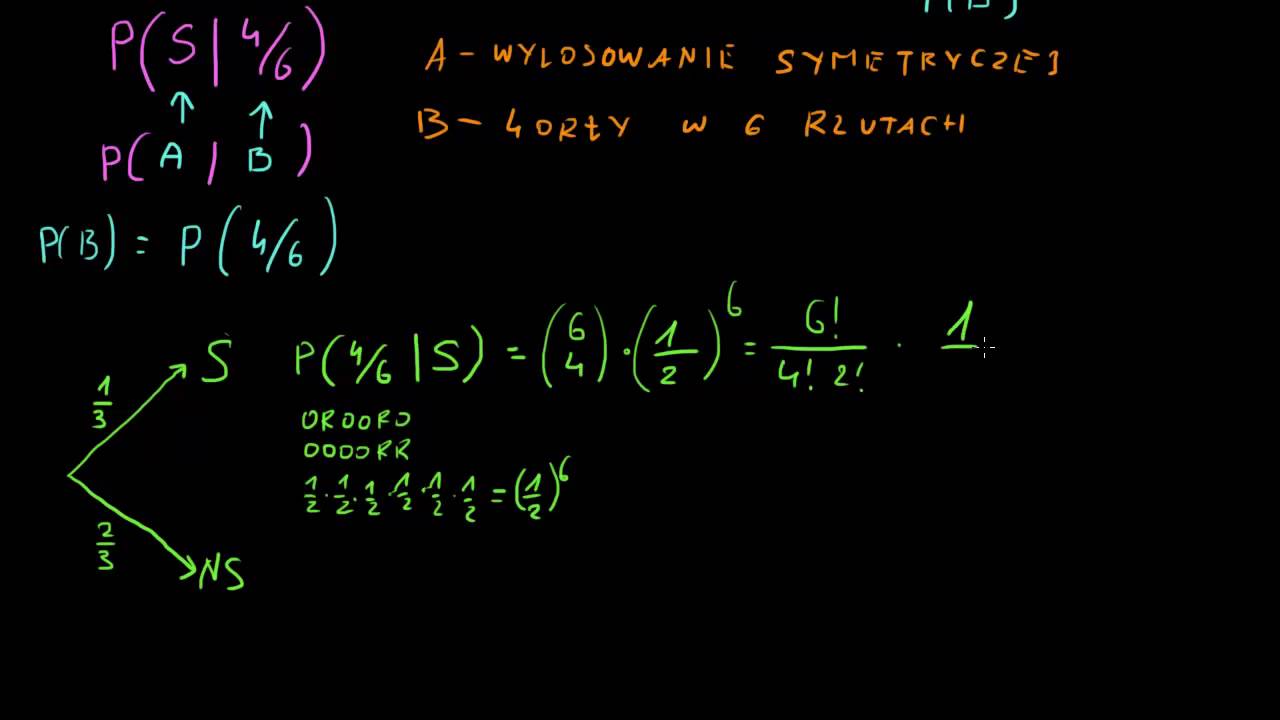 P(B)
P(S | 4/6)
A - WYLOSOWANIE SYMETRYCZEJ
B - 4 ORŁY W 6 RZUTACH
P(A | B)
P(B) = P(4/6)
1/3
S
P(4/6 | S) = (6 4) · (1/2)^6 = 6!/(4! 2!) · 1
OROORO
OOOORR
1/2 · 1/2 · 1/2 · 1/2 · 1/2 · 1/2 = (1/2)^6
2/3
NS